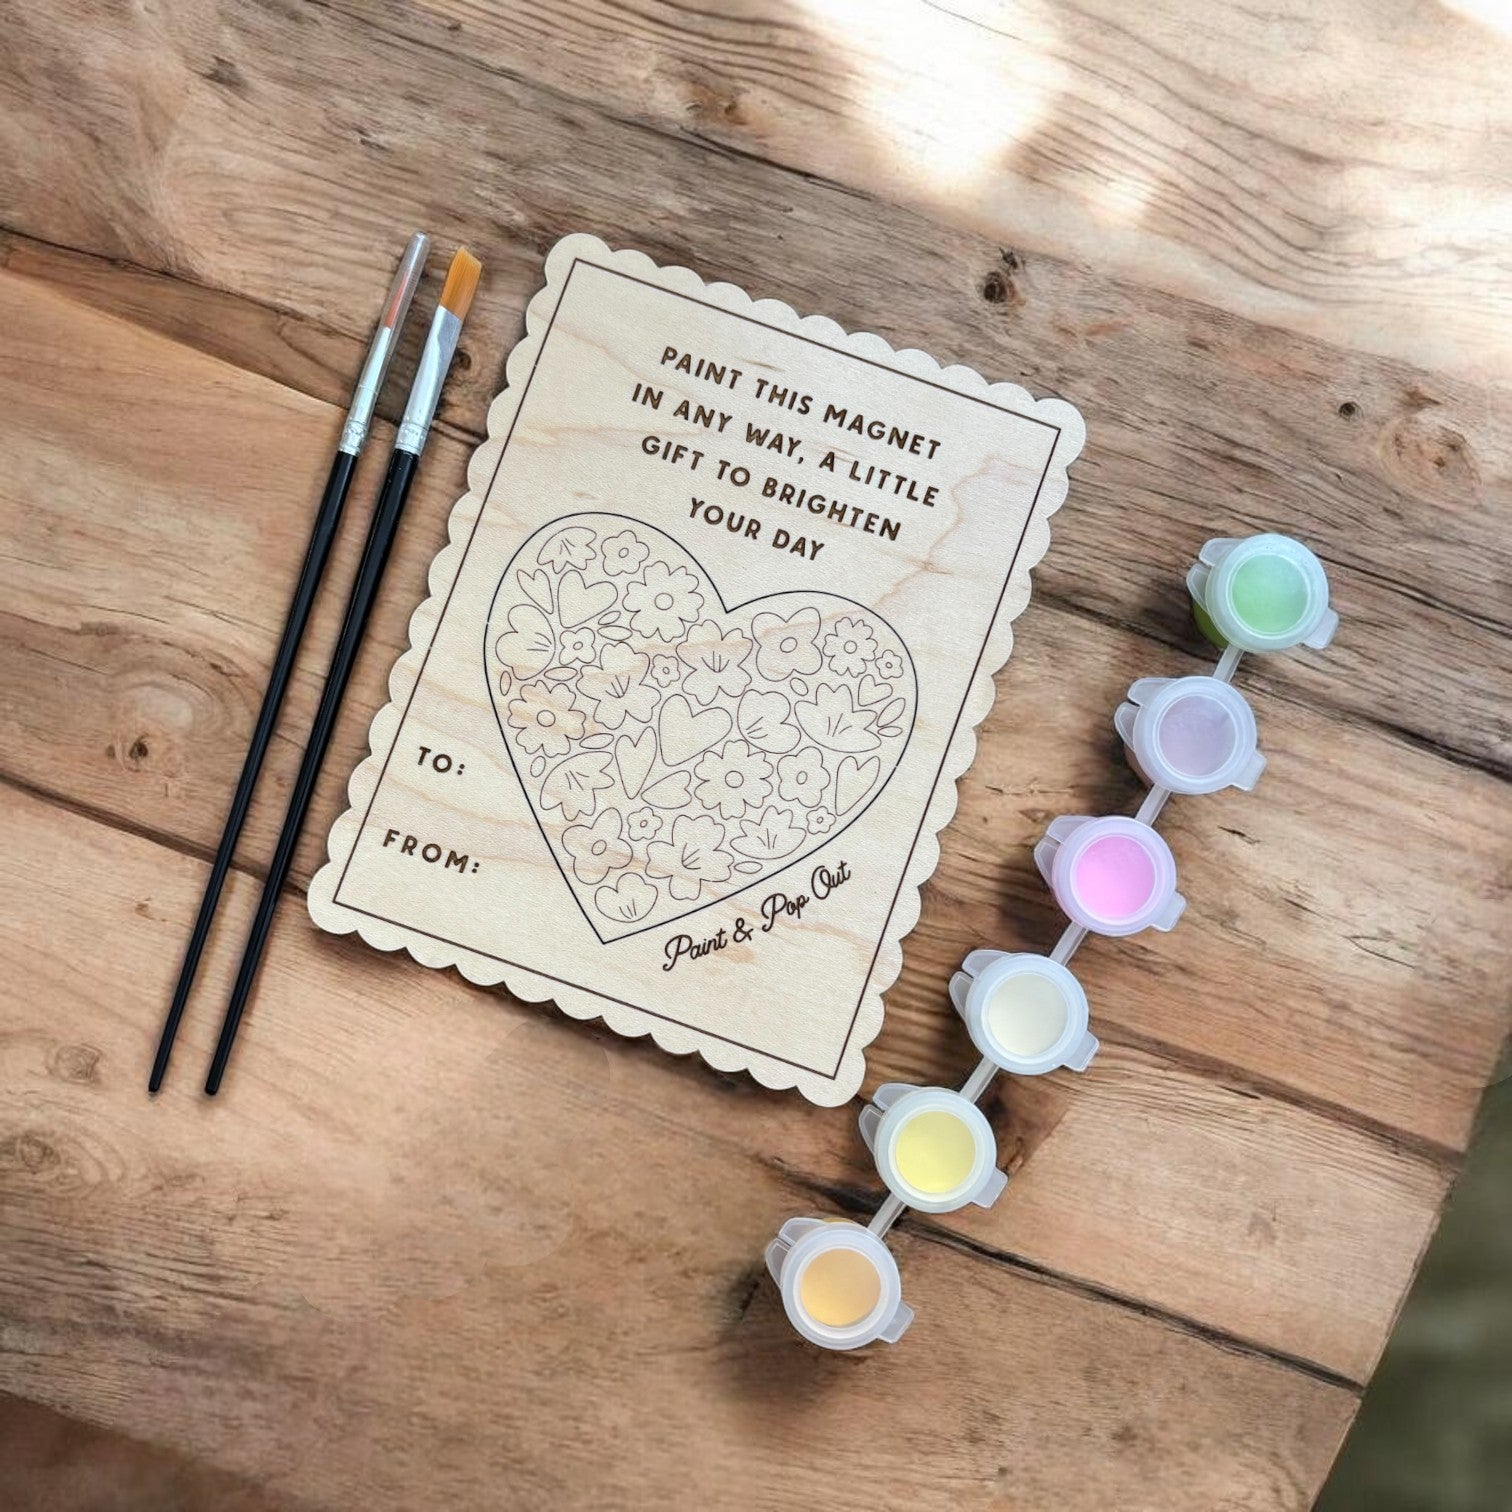 PAINT THIS MAGNET
IN ANY WAY, A LITTLE
GIFT TO BRIGHTEN
YOUR DAY
TO:
FROM:
Paint & Pop Out